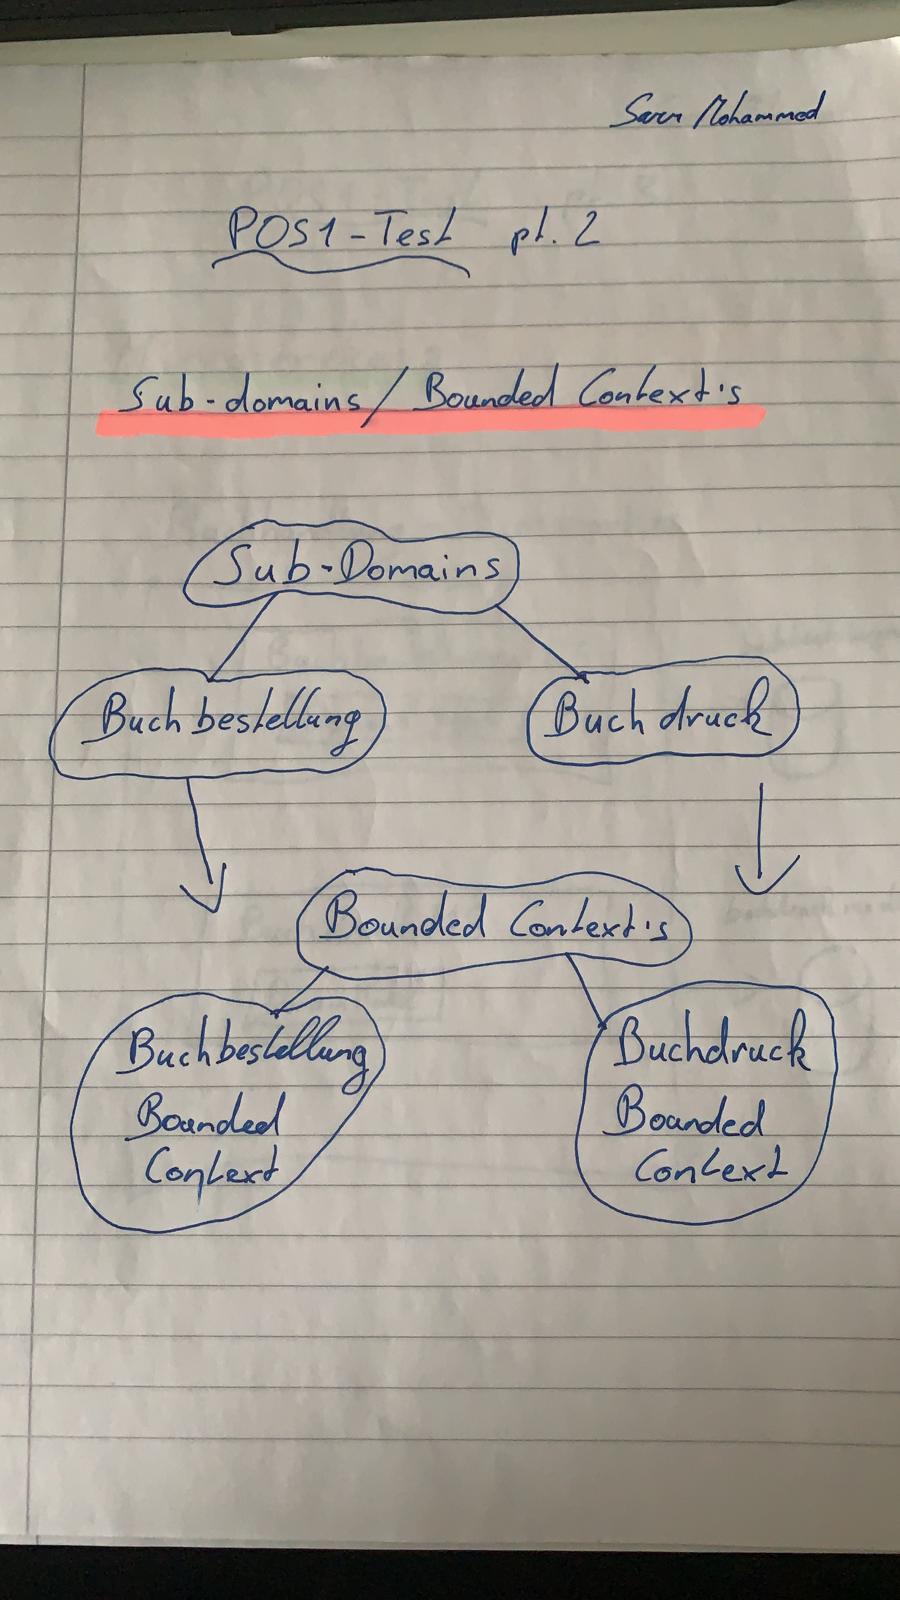 Mohammed
POS1-Test pt. 2
Sub-domains/Bounded Context's
Sub-Domains
Buchbestellung
Buchdruck
Bounded Context's
Buchbestellung
Bounded
Context
Buchdruck
Bounded
Context